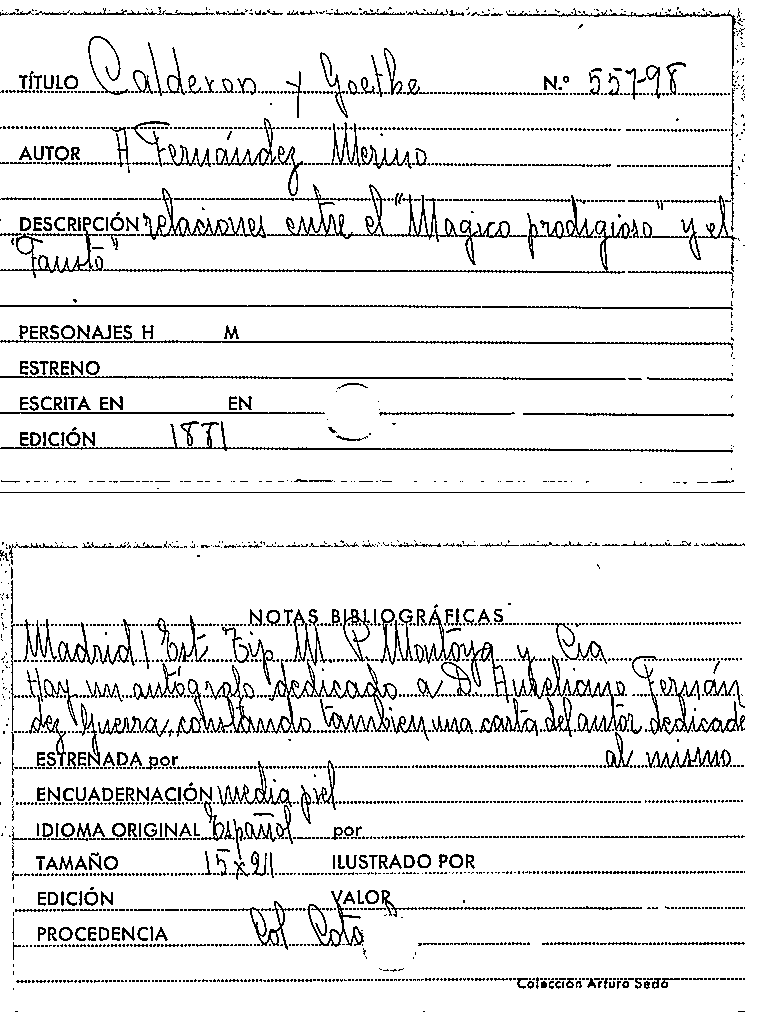 TÍTULO Calderon y Goethe N.º 557-98
AUTOR A Fernández Merino
DESCRIPCIÓN relaciones entre el "Magico prodigioso" y el
"Fausto"
PERSONAJES H M
ESTRENO
ESCRITA EN EN
EDICIÓN 1881
NOTAS BIBLIOGRÁFICAS
Madrid / Est Tip M P Montoya y Cia
Hay un autógrafo dedicado a D Aureliano Fernán
dez Guerra, constando tambien una carta del autor dedicade
al mismo
ESTRENADA por
ENCUADERNACIÓN media piel
IDIOMA ORIGINAL Español por
TAMAÑO 15x21 ILUSTRADO POR
EDICIÓN VALOR
PROCEDENCIA Col Cota
Colección Arturo Sedó